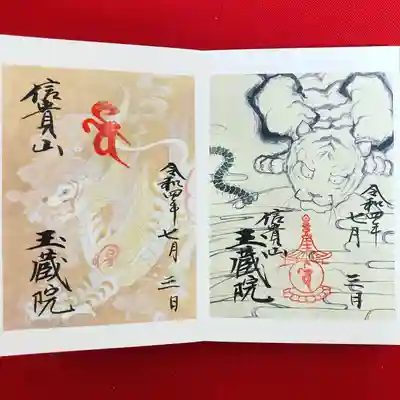 信貴山
令和四年
七月
三日
玉蔵院
令和四年
七月
三日
信貴山
玉蔵院